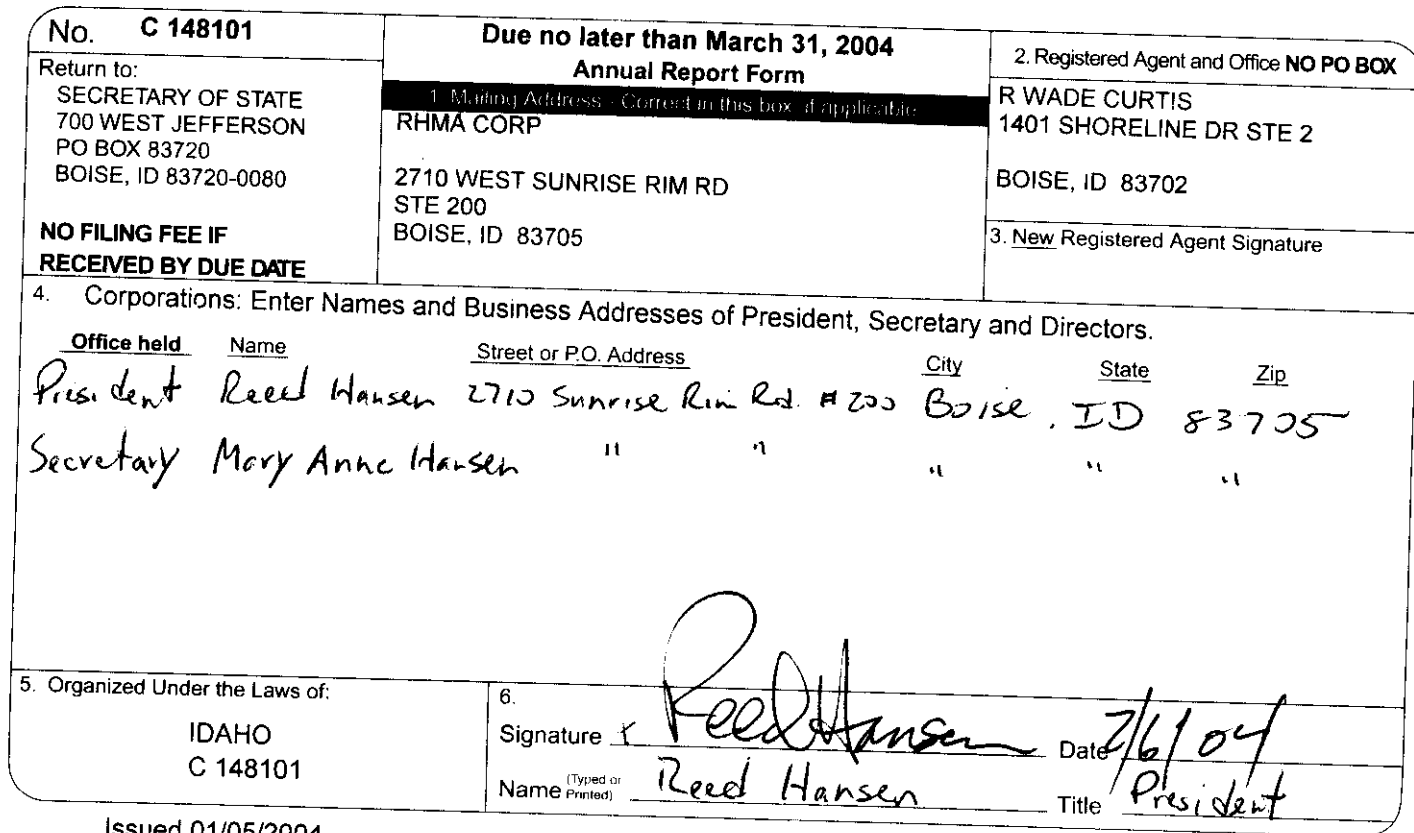 No. C 148101
Return to:
SECRETARY OF STATE
700 WEST JEFFERSON
PO BOX 83720
BOISE, ID 83720-0080
NO FILING FEE IF
RECEIVED BY DUE DATE
Due no later than March 31, 2004
Annual Report Form
1. Mailing Address - Correct in this box, if applicable
RHMA CORP
2710 WEST SUNRISE RIM RD
STE 200
BOISE, ID 83705
2. Registered Agent and Office NO PO BOX
R WADE CURTIS
1401 SHORELINE DR STE 2
BOISE, ID 83702
3. New Registered Agent Signature
4. Corporations: Enter Names and Business Addresses of President, Secretary and Directors.
Office held Name Street or P.O. Address City State Zip
President Reed Hansen 2710 Sunrise Rim Rd. #200 Boise, ID 83705
Secretary Mary Anne Hansen " " " " "
5. Organized Under the Laws of:
IDAHO
C 148101
6.
Signature x Reed Hansen Date 2/6/04
Name (Typed or Printed) Reed Hansen Title President
Issued 01/05/2004